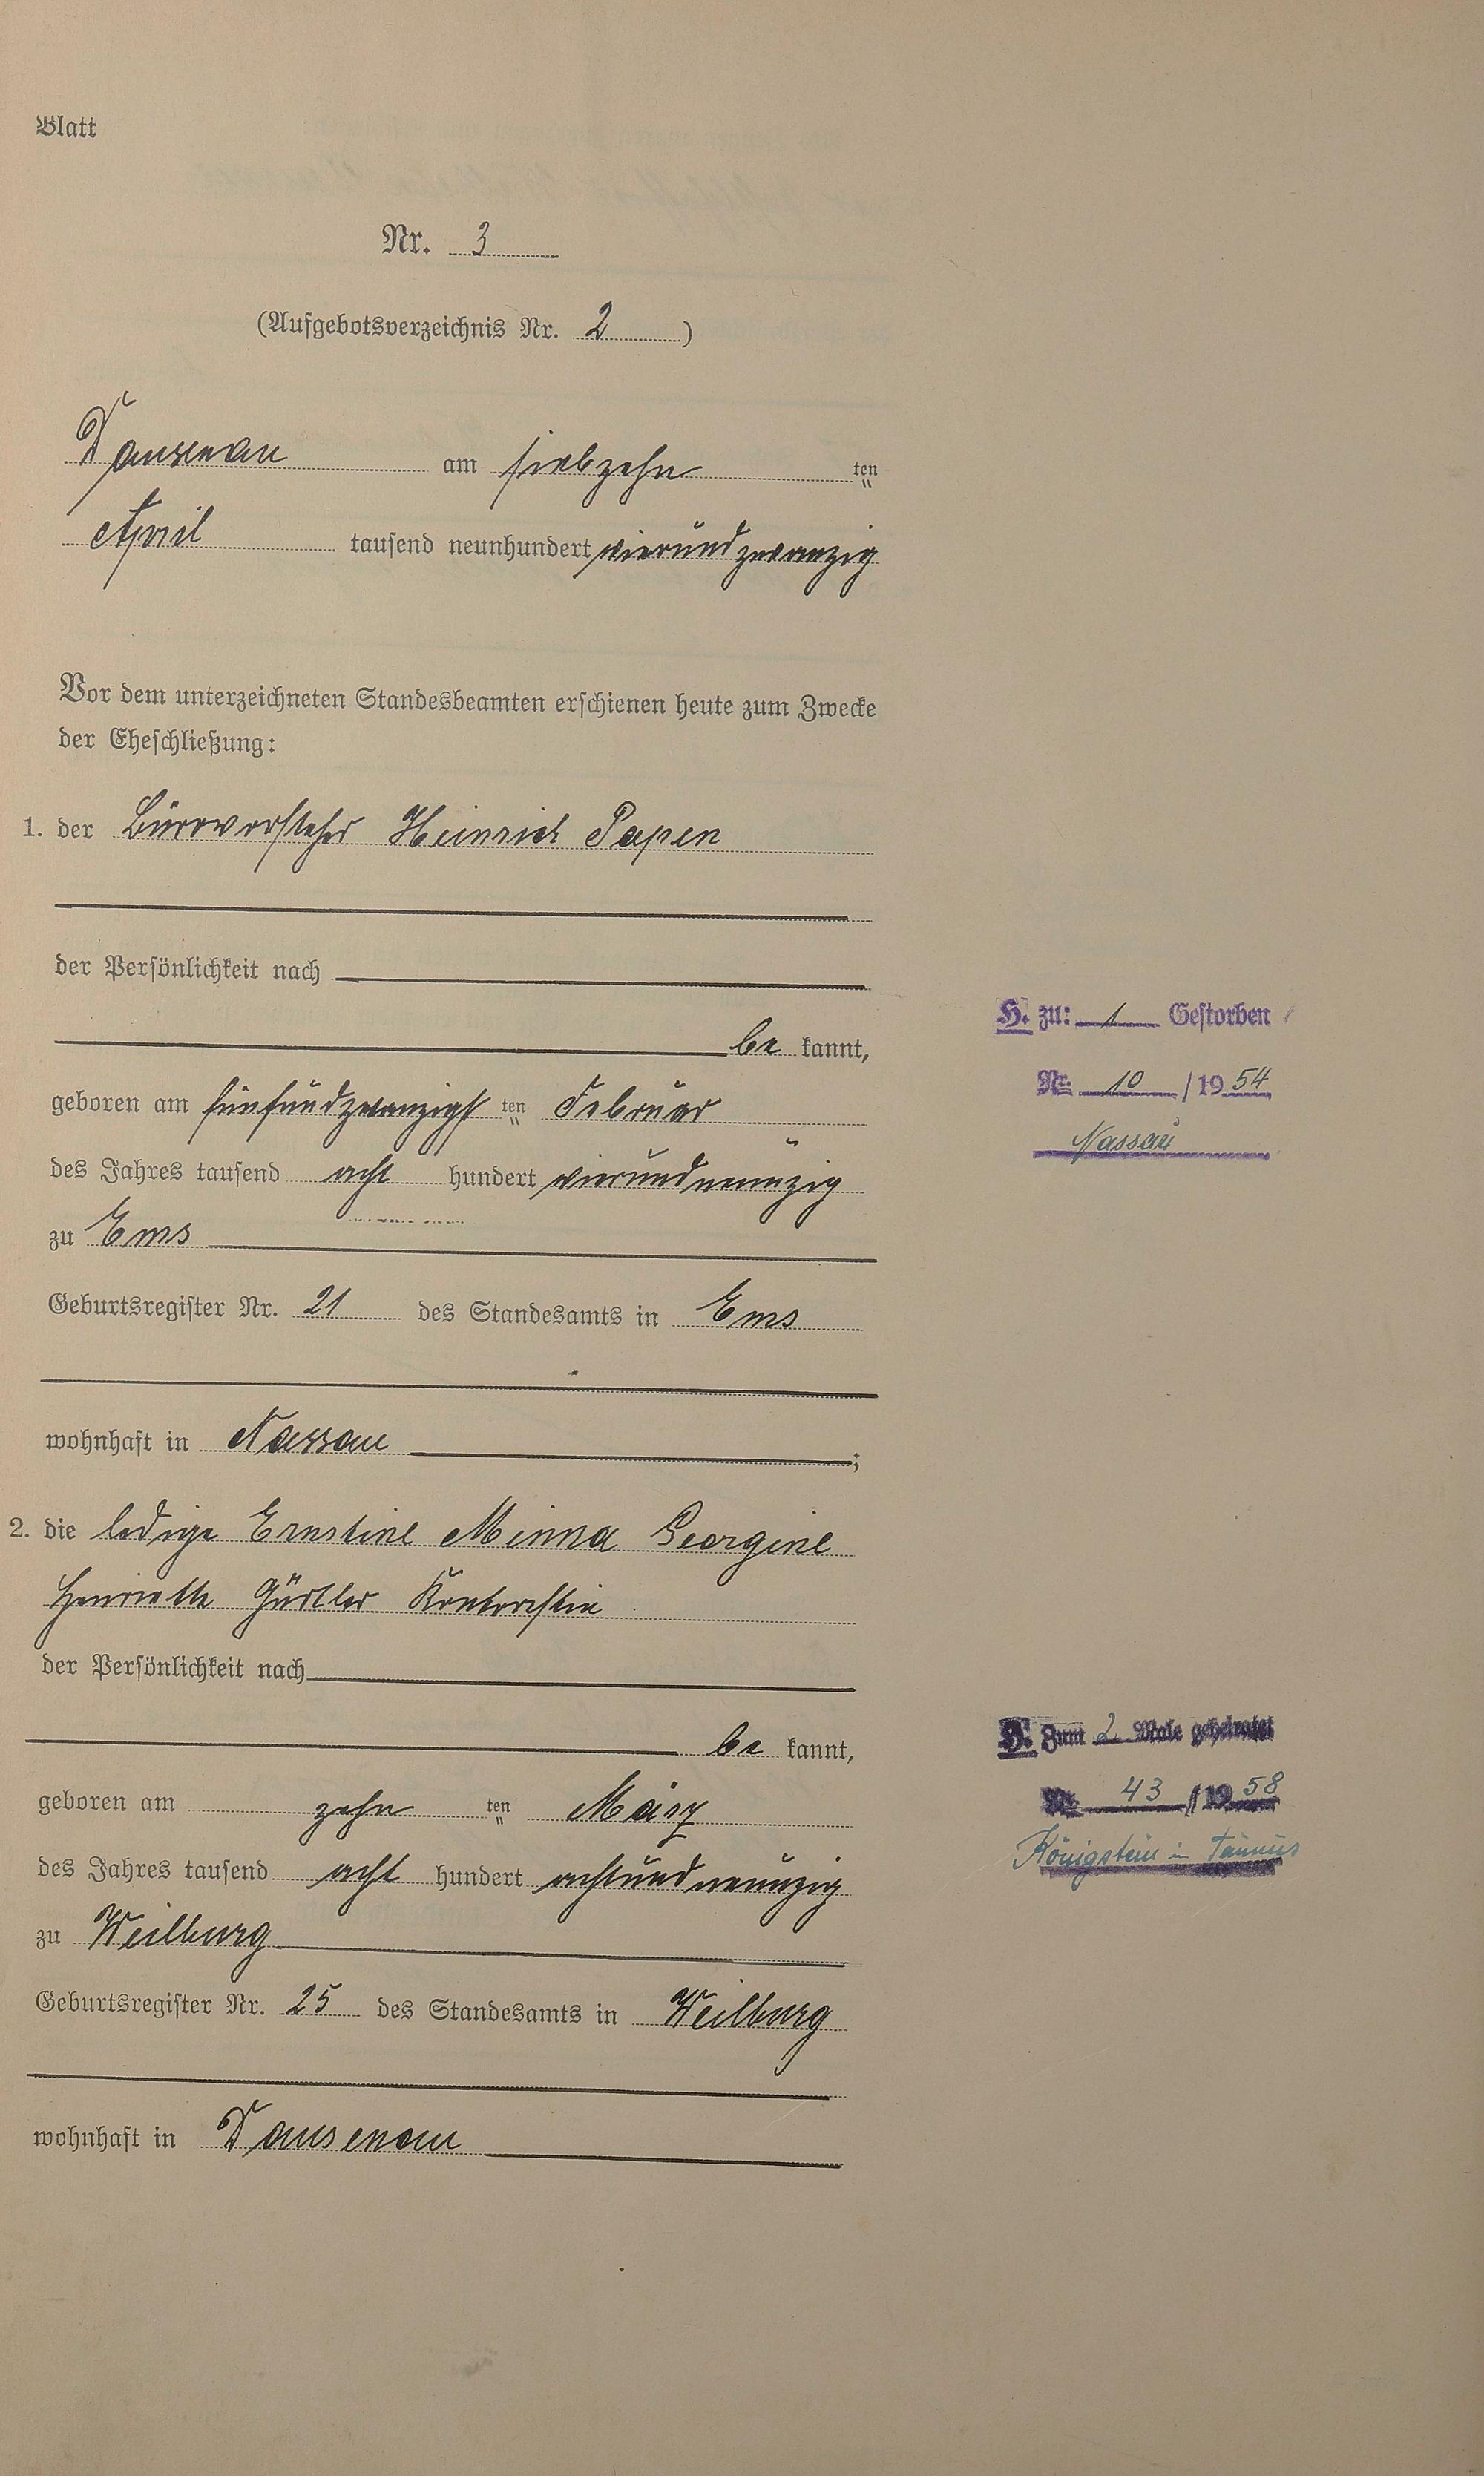 Blatt
Nr. 3
(Aufgebotsverzeichnis Nr. 2)
Dausenau am siebzehn ten
April tausend neunhundert vierundzwanzig
Vor dem unterzeichneten Standesbeamten erschienen heute zum Zwecke
der Eheschließung:
1. der Bürovorsteher Heinrich Papen
der Persönlichkeit nach
be kannt,
geboren am fünfundzwanzigst ten Februar
des Jahres tausend acht hundert vierundneunzig
zu Ems
Geburtsregister Nr. 21 des Standesamts in Ems
wohnhaft in Nassau;
2. die ledige Ernstine Minna Georgine
Henriette Gürtler Kontoristin
der Persönlichkeit nach
be kannt,
geboren am zehn ten März
des Jahres tausend acht hundert achtundneunzig
zu Weilburg
Geburtsregister Nr. 25 des Standesamts in Weilburg
wohnhaft in Dausenau
H. zu: 1 Gestorben
Nr. 10 / 1954
Nassau
H. Zum 2 Male geheiratet
Nr. 43 / 1958
Königstein i Taunus